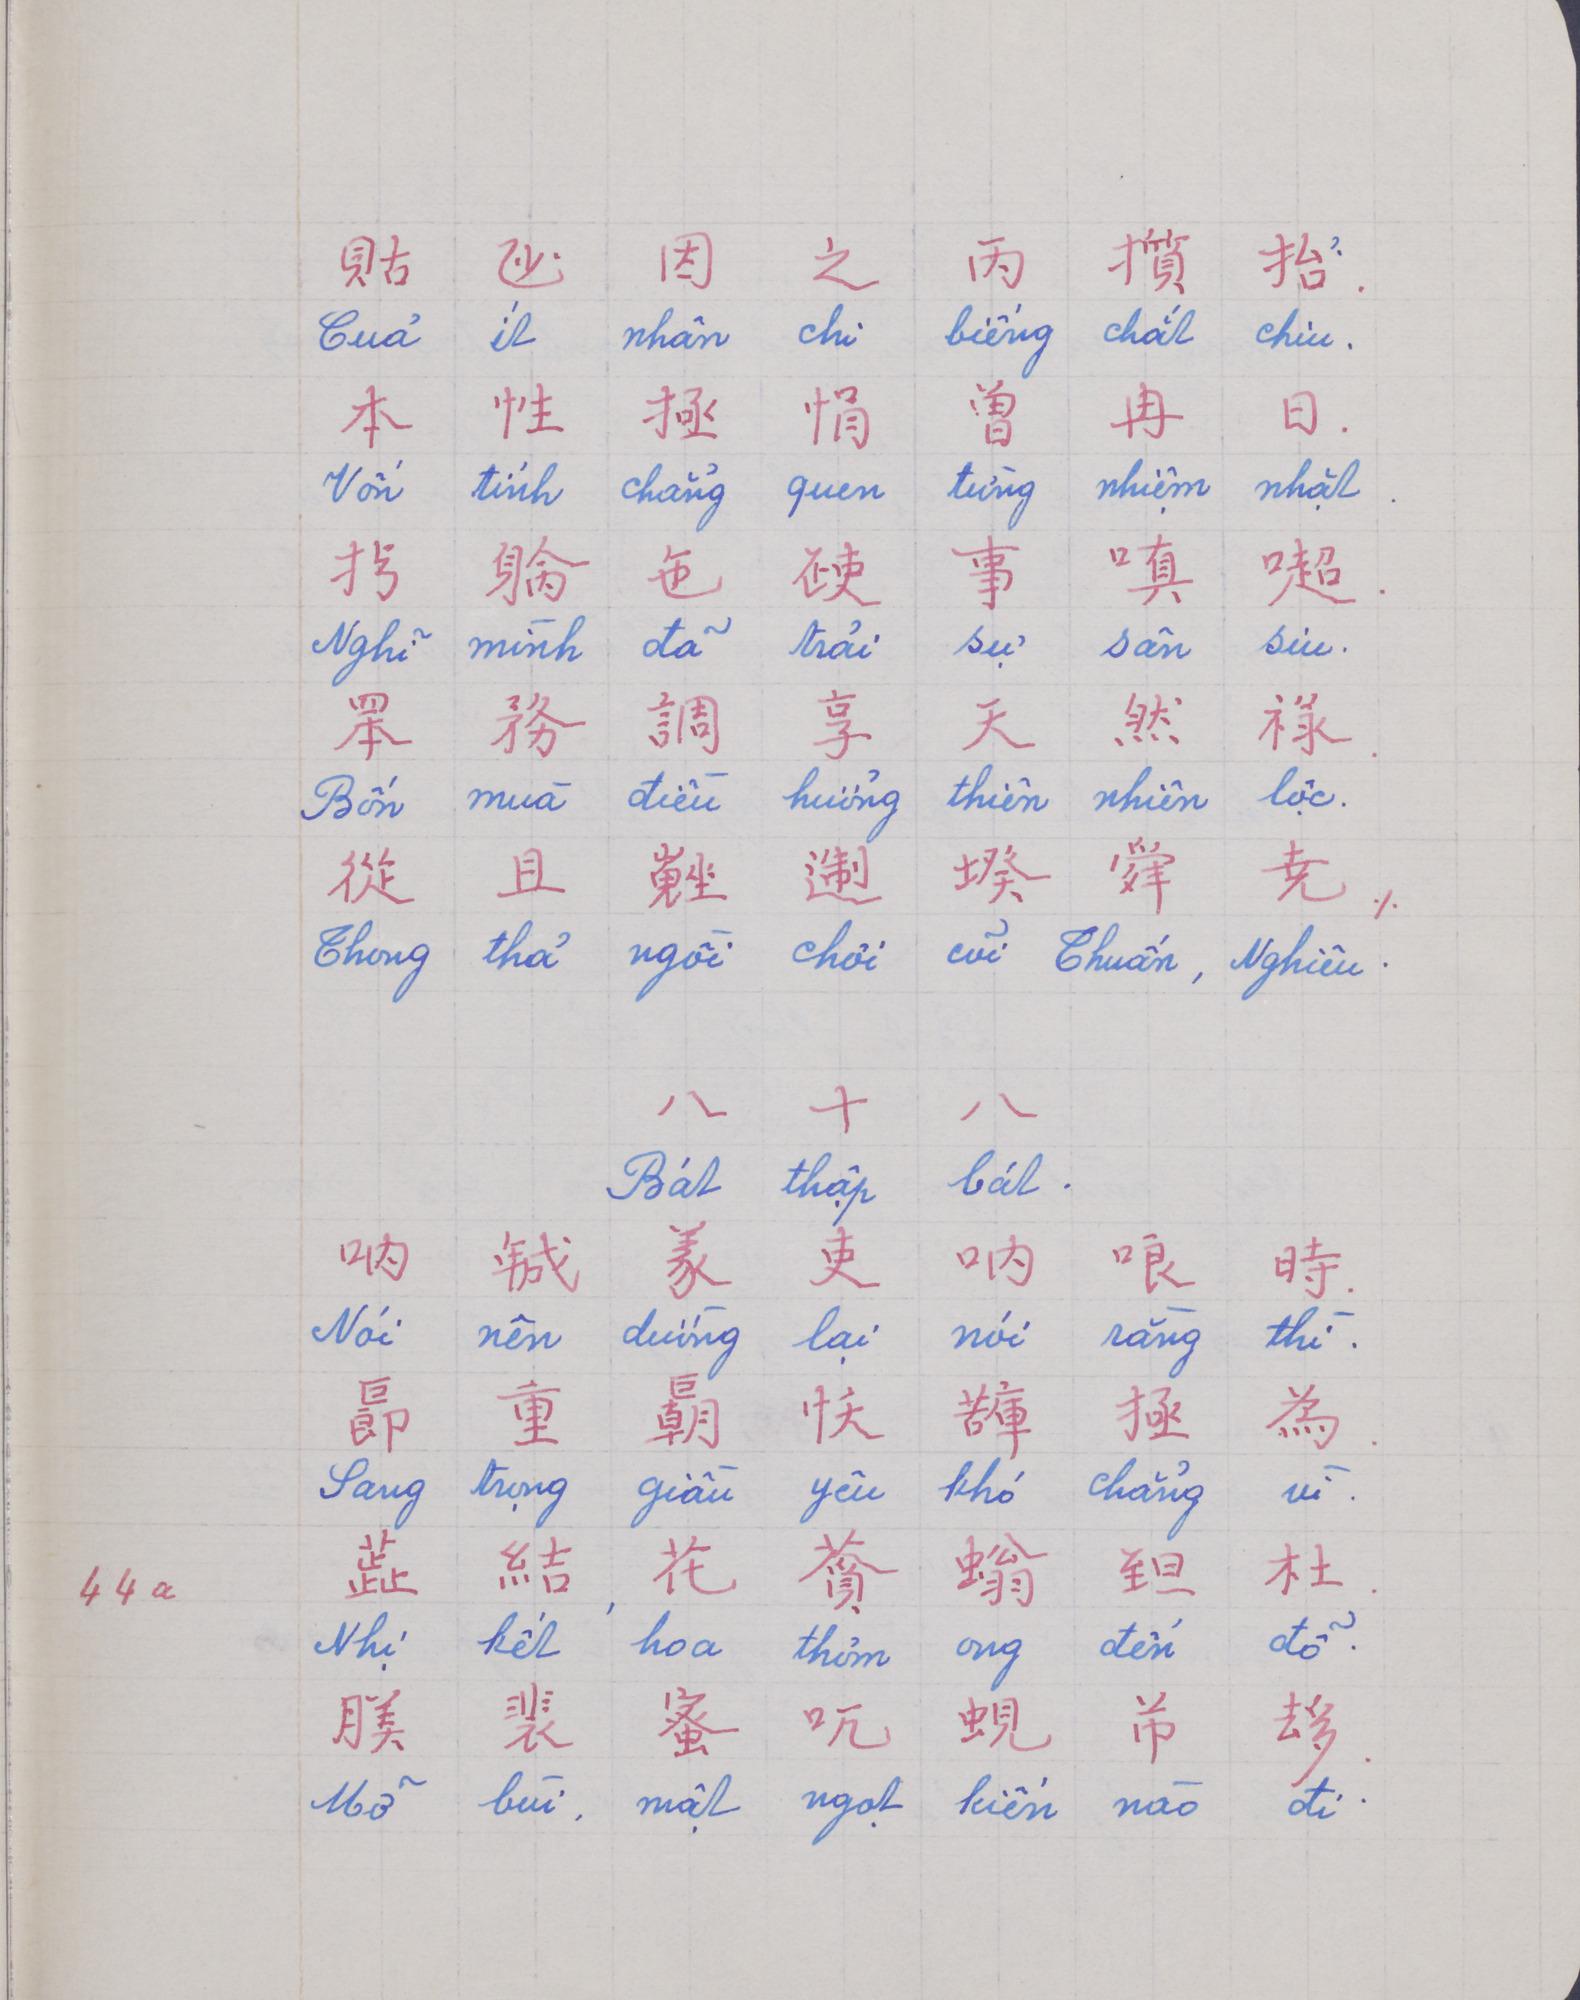 貼 因 之 丙 擯 抬.
Cuả ít nhân chi biếng chắt chiu.
本 性 極 悁 曾 冉 日.
Vốn tính chẳng quen từng nhiệm nhặt.
事 嗔 𠿿.
Nghĩ mình đã trải sự sân siu.
務 調 享 天 然 祿.
Bốn muà điều hưởng thiên nhiên lộc.
從 且 舜 尭 ./.
Thong thả ngồi chơi cõi Thuấn, Nghiêu.
八 十 八
Bát thập bát.
吶 吏 吶 哏 時.
Nói nên dường lại nói rằng thì.
重 極 為.
Sang trọng giầu yêu khó chẳng vì.
結, 花 螉 杜.
44a
Nhị kết hoa thơm ong đến đỗ.
裴 蜜 蜆 芇
Mỡ bùi, mật ngọt kiến nào đi.